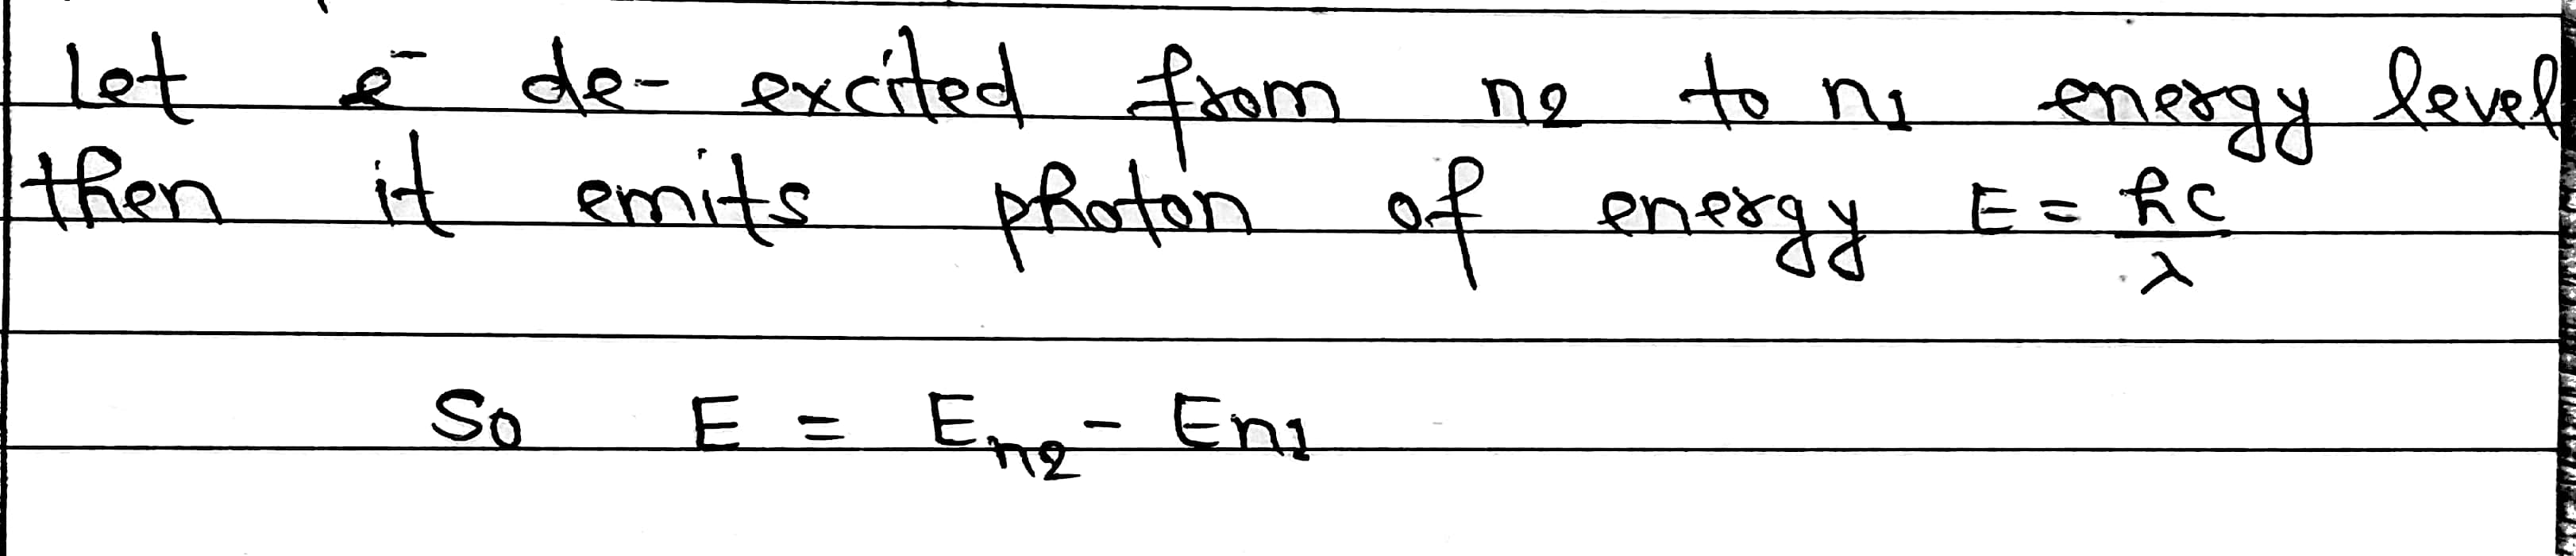 Let e⁻ de-excited from n₂ to n₁ energy level
then it emits photon of energy E = hc/λ
So E = Eₙ₂ - Eₙ₁